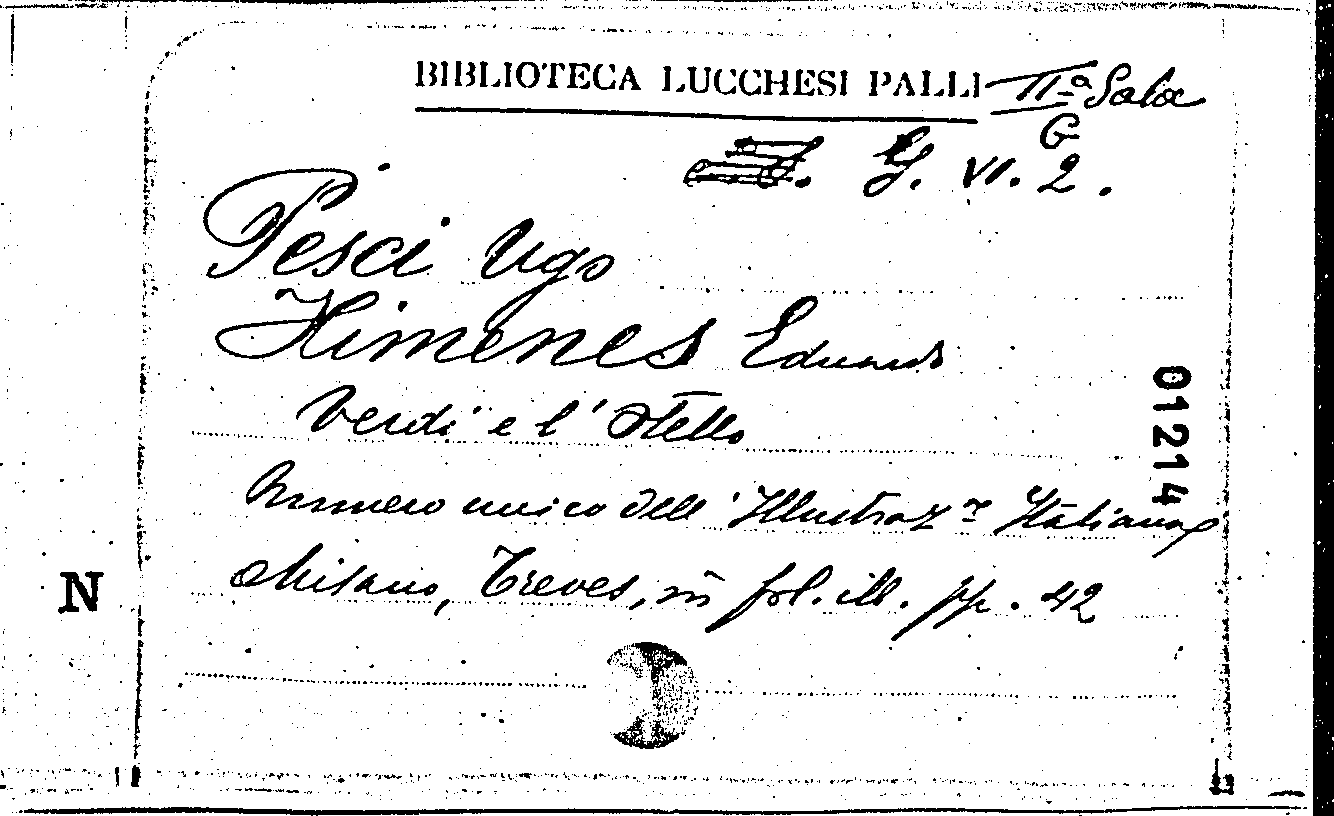 BIBLIOTECA LUCCHESI PALLI IIª Sala
G
G. VI. 2.
Pesci Ugo
Ximenes Eduardo
Verdi e l'Otello
Numero unico dell'Illustraz.ne Italiana
Milano, Treves, in fol. ill. pp. 42
01214
N